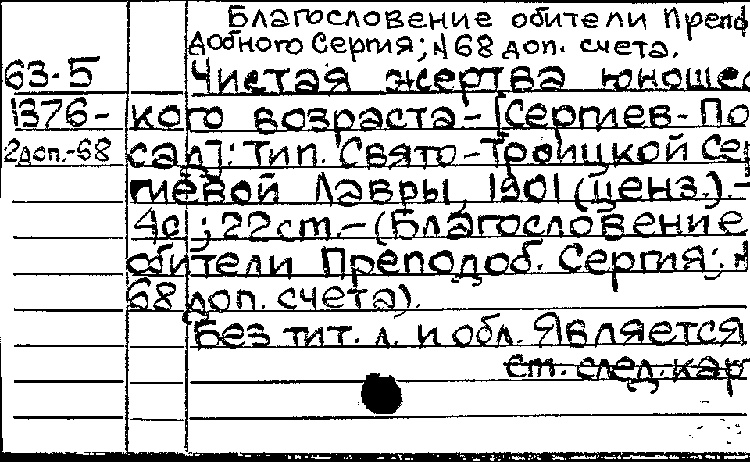 Благословение обители Преп
добного Сергия; N 68 доп. счета.
63-5 Чистая жертва юношес
1376- кого возраста.-[Сергиев-По
2доп.-68 сад]: Тип. Свято-Троицкой Сер
гиевой Лавры, 1901 (ценз.).-
4с.; 22 cm.-(Благословение
обители Преподоб. Сергия; N
68 доп. счета).
Без тит. л. и обл. Является
ст. след. кар